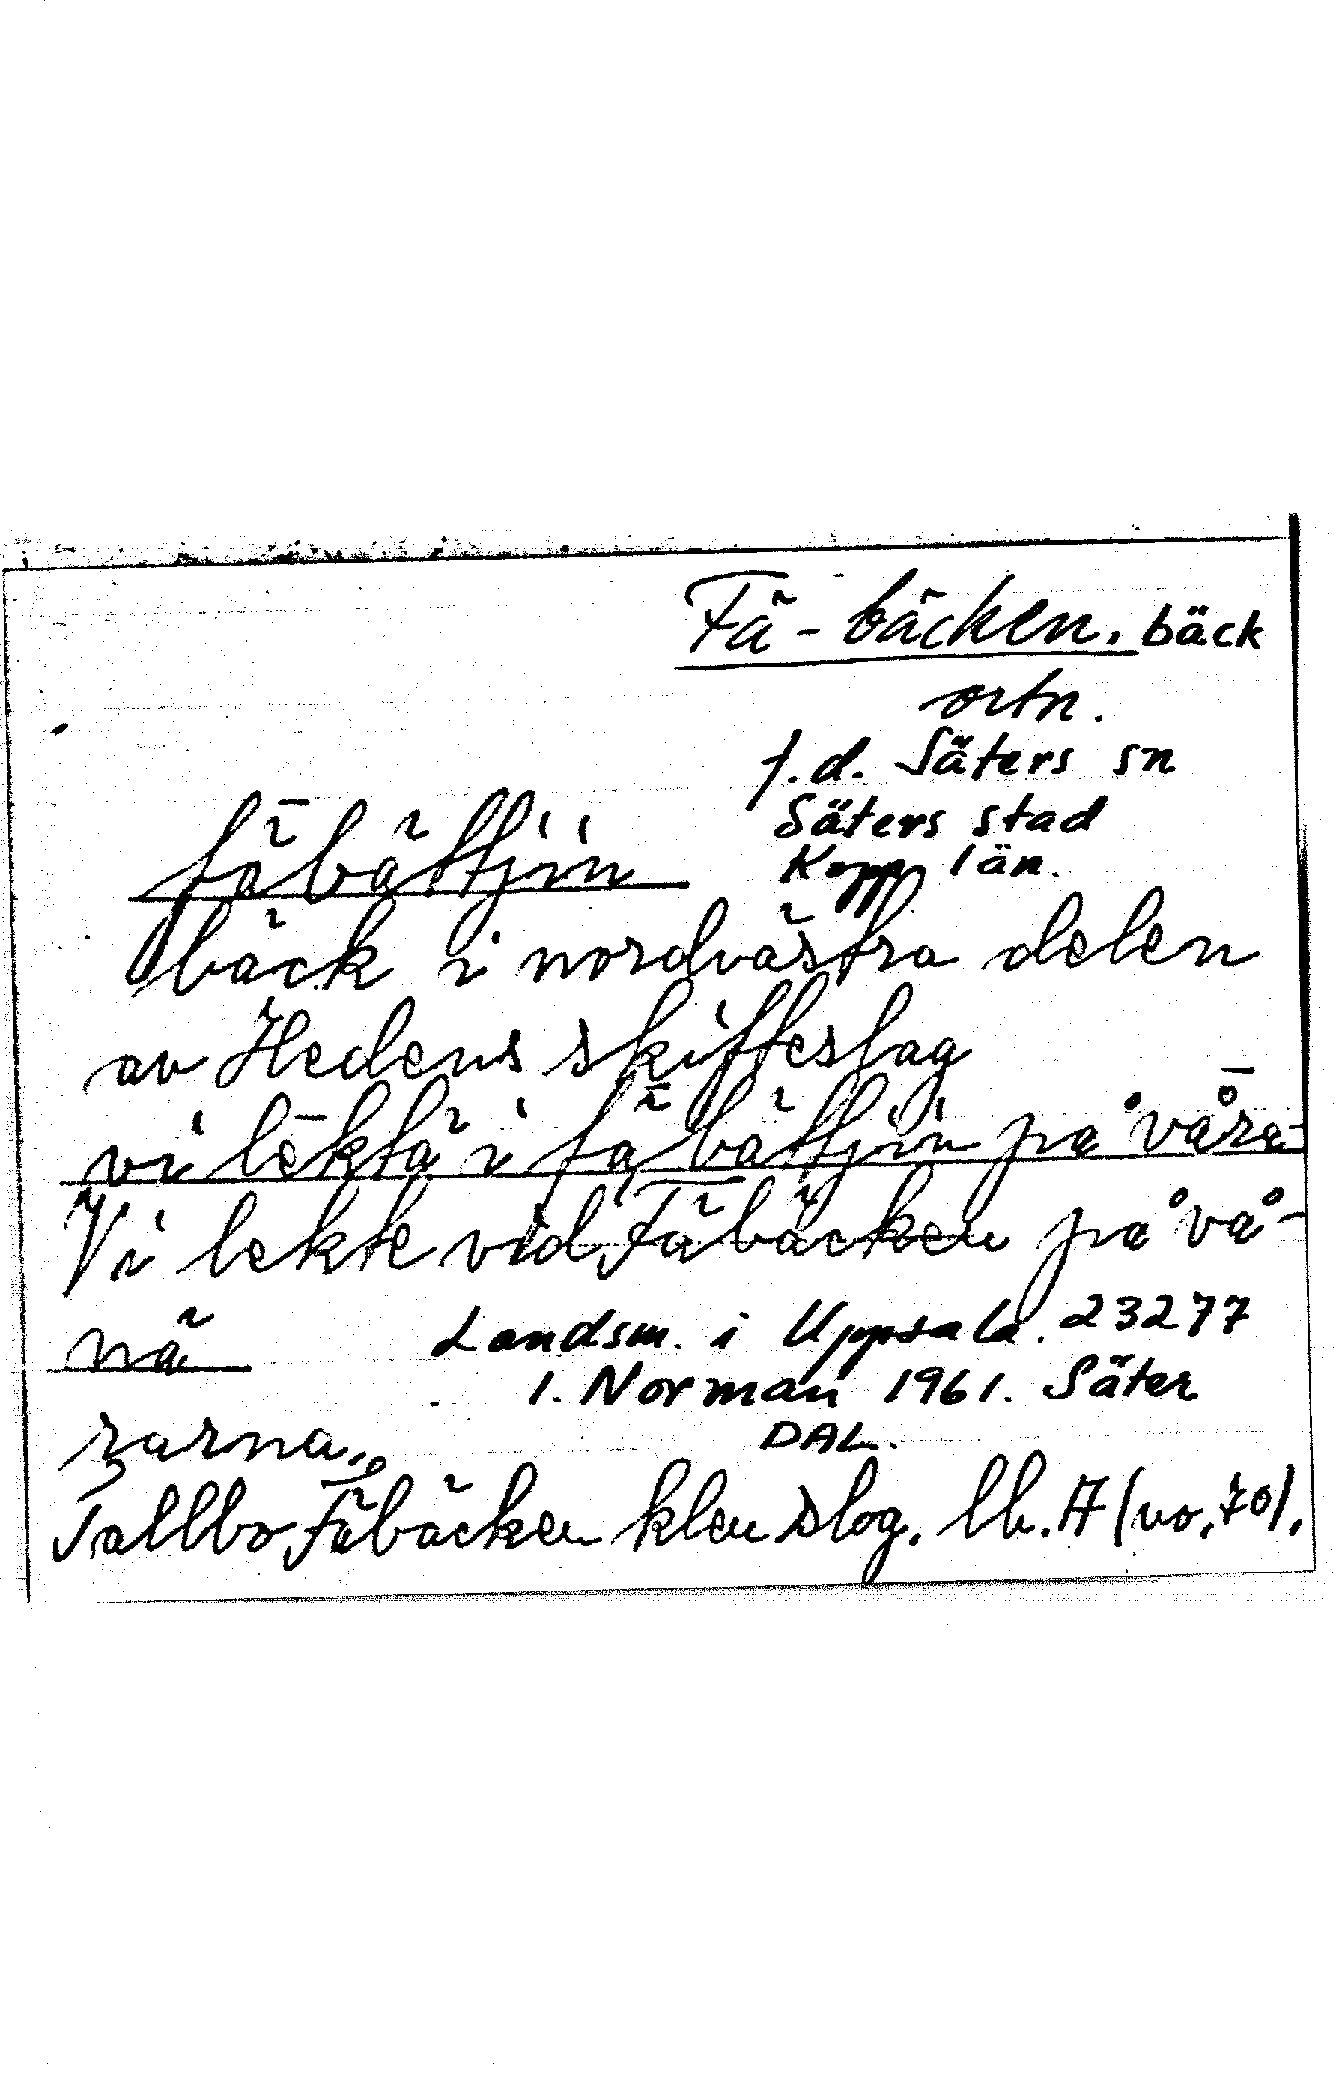 Fä-bäcken. bäck
ortn.
f.d. Säters sn
Säters stad
Kopp. län.
fǟbättjin
bäck i nordvästra delen
av Hedens skifteslag
vi lēktä i fǟbättjin på vå̄ra-
Vi lekte vid Fäbäcken på vå-
nä
Landsm. i Uppsala. 23277
I. Norman 1961. Säter
DAL.
rarna.
Tallbo Fäbäcken klen slog. lh. A (no. 70).